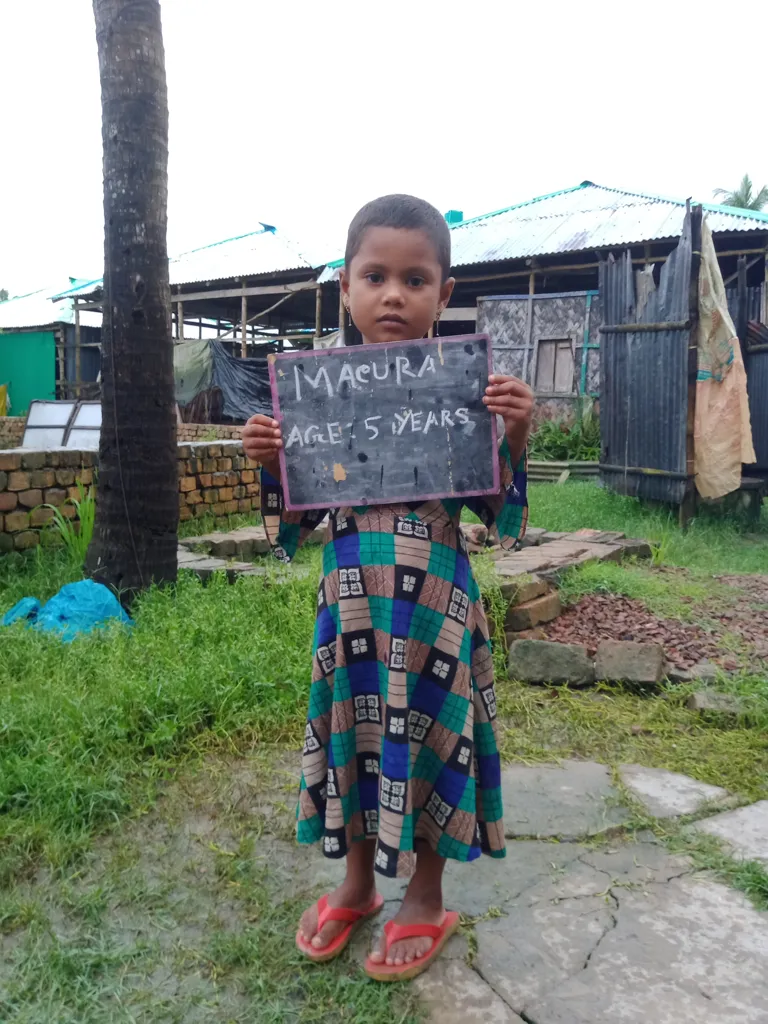 MACURA
AGE: 5 YEARS